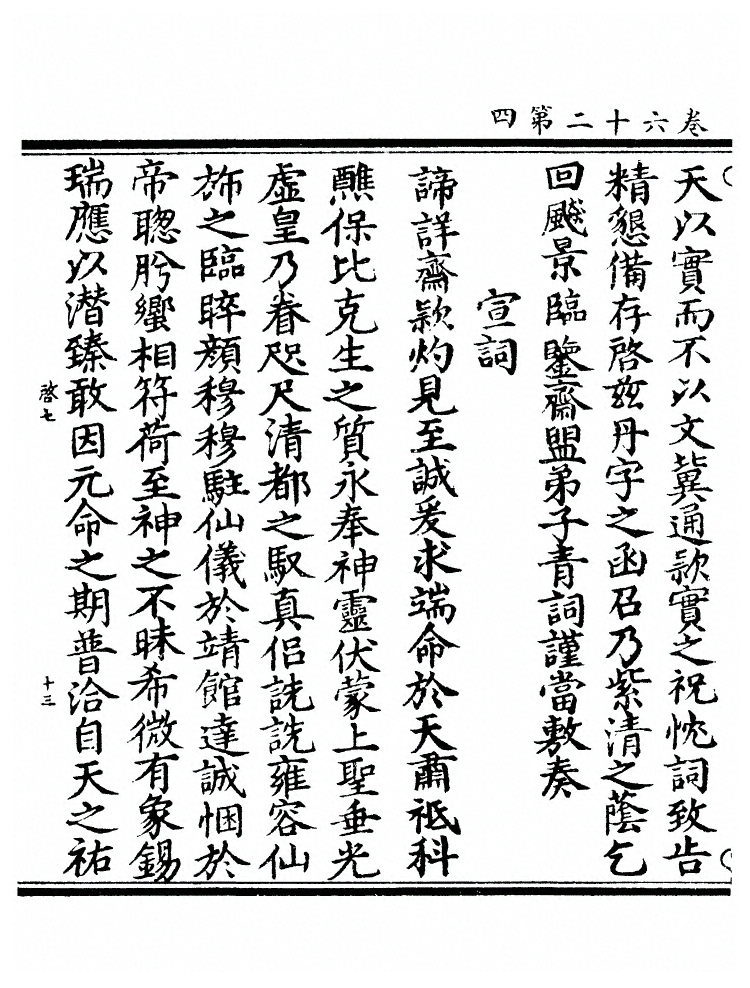 卷六十二第四
天以實而不以文冀通款實之祝忱詞致告
精懇備存啓兹丹字之函召乃紫清之蔭乞
回飈景臨鑒齋盟弟子青詞謹當敷奏
宣詞
諦詳齋款灼見至誠爰求端命於天肅祇科
醮保比克生之質永奉神靈伏蒙上聖垂光
虛皇乃眷咫尺清都之馭真侣詵詵雍容仙
斾之臨睟顔穆穆駐仙儀於靖館達誠悃於
帝聦肹蠁相符荷至神之不昧希微有象錫
瑞應以潜臻敢因元命之期普洽自天之祐
啓七
十三